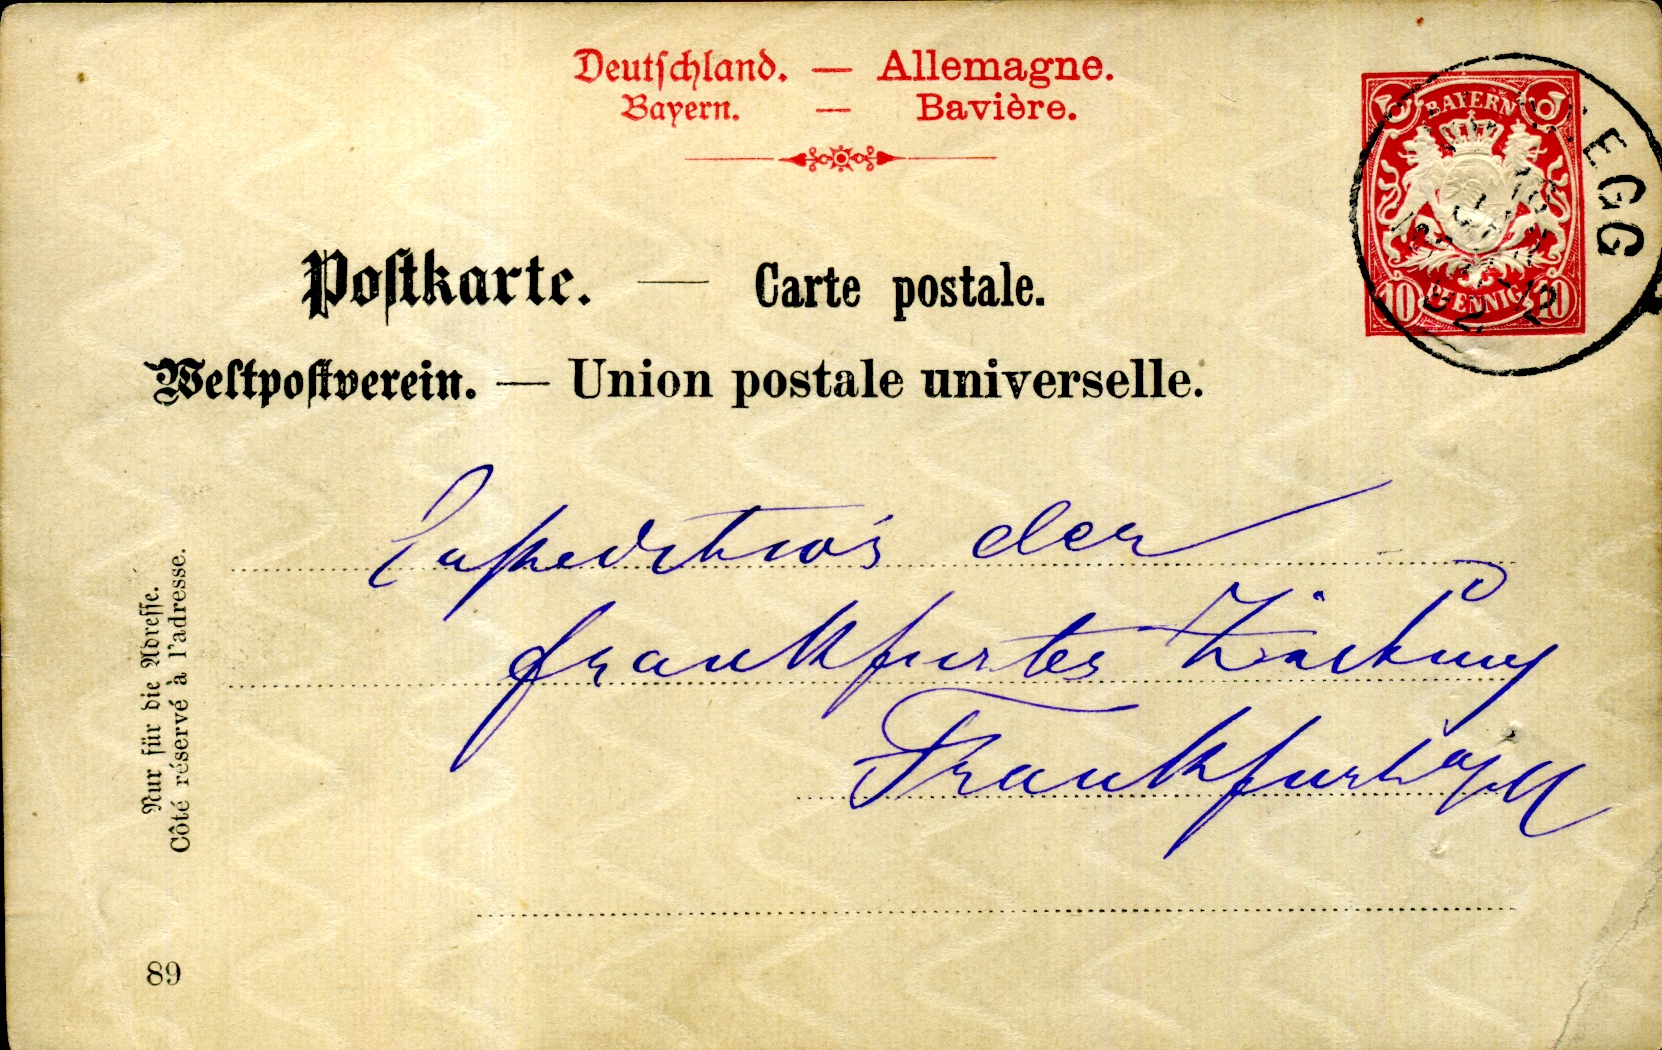 Deutschland. — Allemagne.
Bayern. — Bavière.
BAYERN
10 PFENNIG 10
EGG
Postkarte. — Carte postale.
Weltpostverein. — Union postale universelle.
Expedition der
Frankfurter Zeitung
Frankfurt a/M
Nur für die Adresse.
Côté réservé à l'adresse.
89